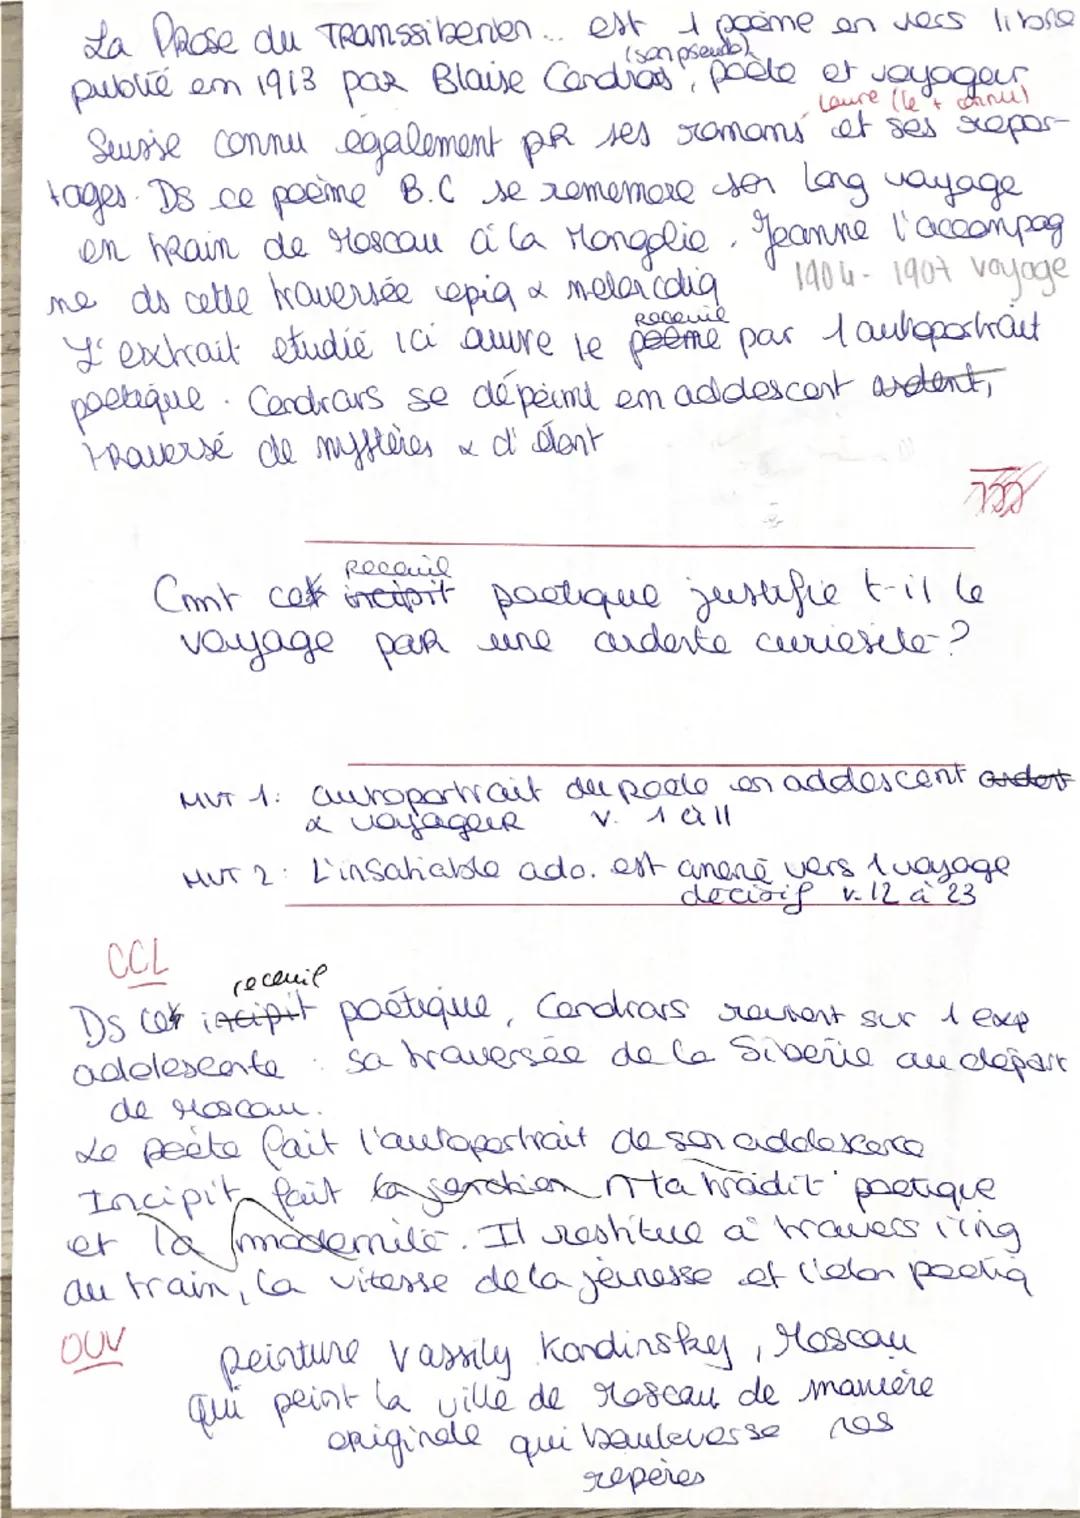 La Prose du Transsiberien... est 1 poème en vers libre
(son pseudo)
publié em 1913 par Blaise Cendrars, poète et voyageur
Laure (le + connu)
Suisse connu également pR ses romans et ses repor-
tages. Ds ce poème B.C se rememore son long voyage
en train de Moscou à la Mongolie. Jeanne l'accompag
1904-1907 voyage
ne ds cette traversée epiq & melancoliq
Receuil
L'extrait etudié ici ouvre le poème par 1 autoportrait
poetique. Cendrars se dépeint em adolescent ardent,
traversé de mystères & d'élont
Receuil
Cmt cet incipit poetique justifie t-il le
voyage paR une ardente curiosité?
MVT 1: autoportrait du poete en adolescent ardent
& voyageur v. 1 à 11
MVT 2: L'insatiable ado. est amené vers 1 voyage
decisif v. 12 à 23
CCL
receuil
Ds cet incipit poétique, Cendrars revient sur 1 exp
adolescente : sa traversée de la Siberie au départ
de Moscou.
Le poète fait l'autoportrait de son adolescence
Incipit fait la jonction la tradit° poetique
et la modernité. Il restitue à travers
au train, la vitesse de la jeunesse et l'élan poétiq
OUV
peinture Vassily Kandinsky, Moscou
qui peint la ville de Moscou de manière
originale qui bouleverse nos
repères